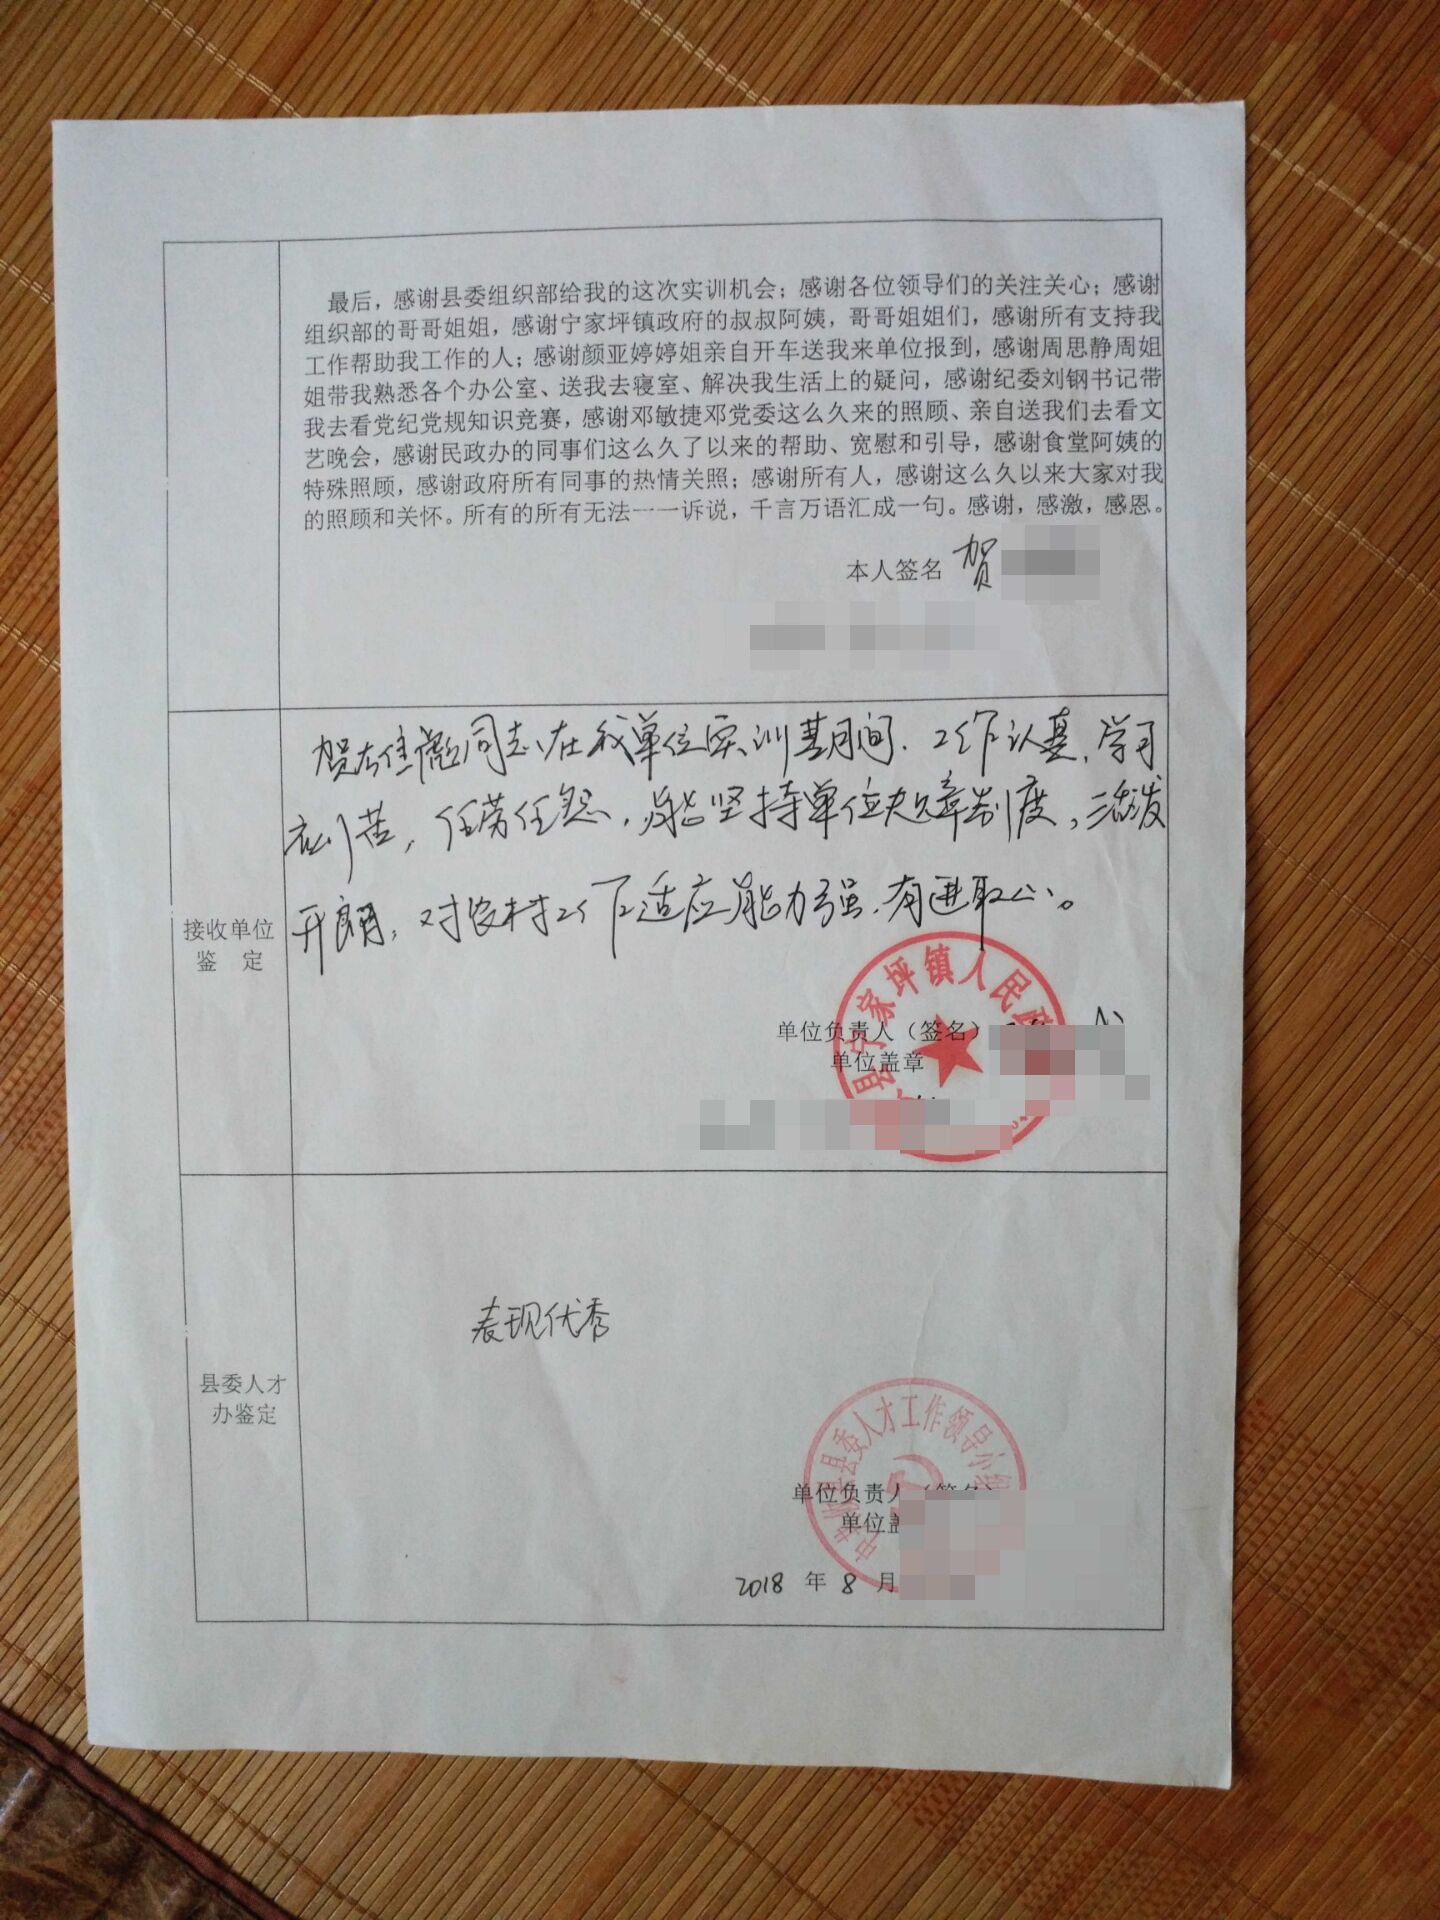 最后，感谢县委组织部给我的这次实训机会；感谢各位领导们的关注关心；感谢
组织部的哥哥姐姐，感谢宁家坪镇政府的叔叔阿姨，哥哥姐姐们，感谢所有支持我
工作帮助我工作的人；感谢颜亚婷婷姐亲自开车送我来单位报到，感谢周思静周姐
姐带我熟悉各个办公室、送我去寝室、解决我生活上的疑问，感谢纪委刘钢书记带
我去看党纪党规知识竞赛，感谢邓敏捷邓党委这么久来的照顾、亲自送我们去看文
艺晚会，感谢民政办的同事们这么久了以来的帮助、宽慰和引导，感谢食堂阿姨的
特殊照顾，感谢政府所有同事的热情关照；感谢所有人，感谢这么久以来大家对我
的照顾和关怀。所有的所有无法一一诉说，千言万语汇成一句。感谢，感激，感恩。
本人签名 贺
接收单位
鉴 定
同志在我单位实训期间，工作认真，学习
刻苦，任劳任怨，能坚持单位规章制度，活泼
开朗，对农村工作适应能力强，有进取心。
县宁家坪镇人民政
单位负责人（签名）
单位盖章
县委人才
办鉴定
表现优秀
县委人才工作领导小组
单位负责人（签名）
单位盖
2018 年 8 月